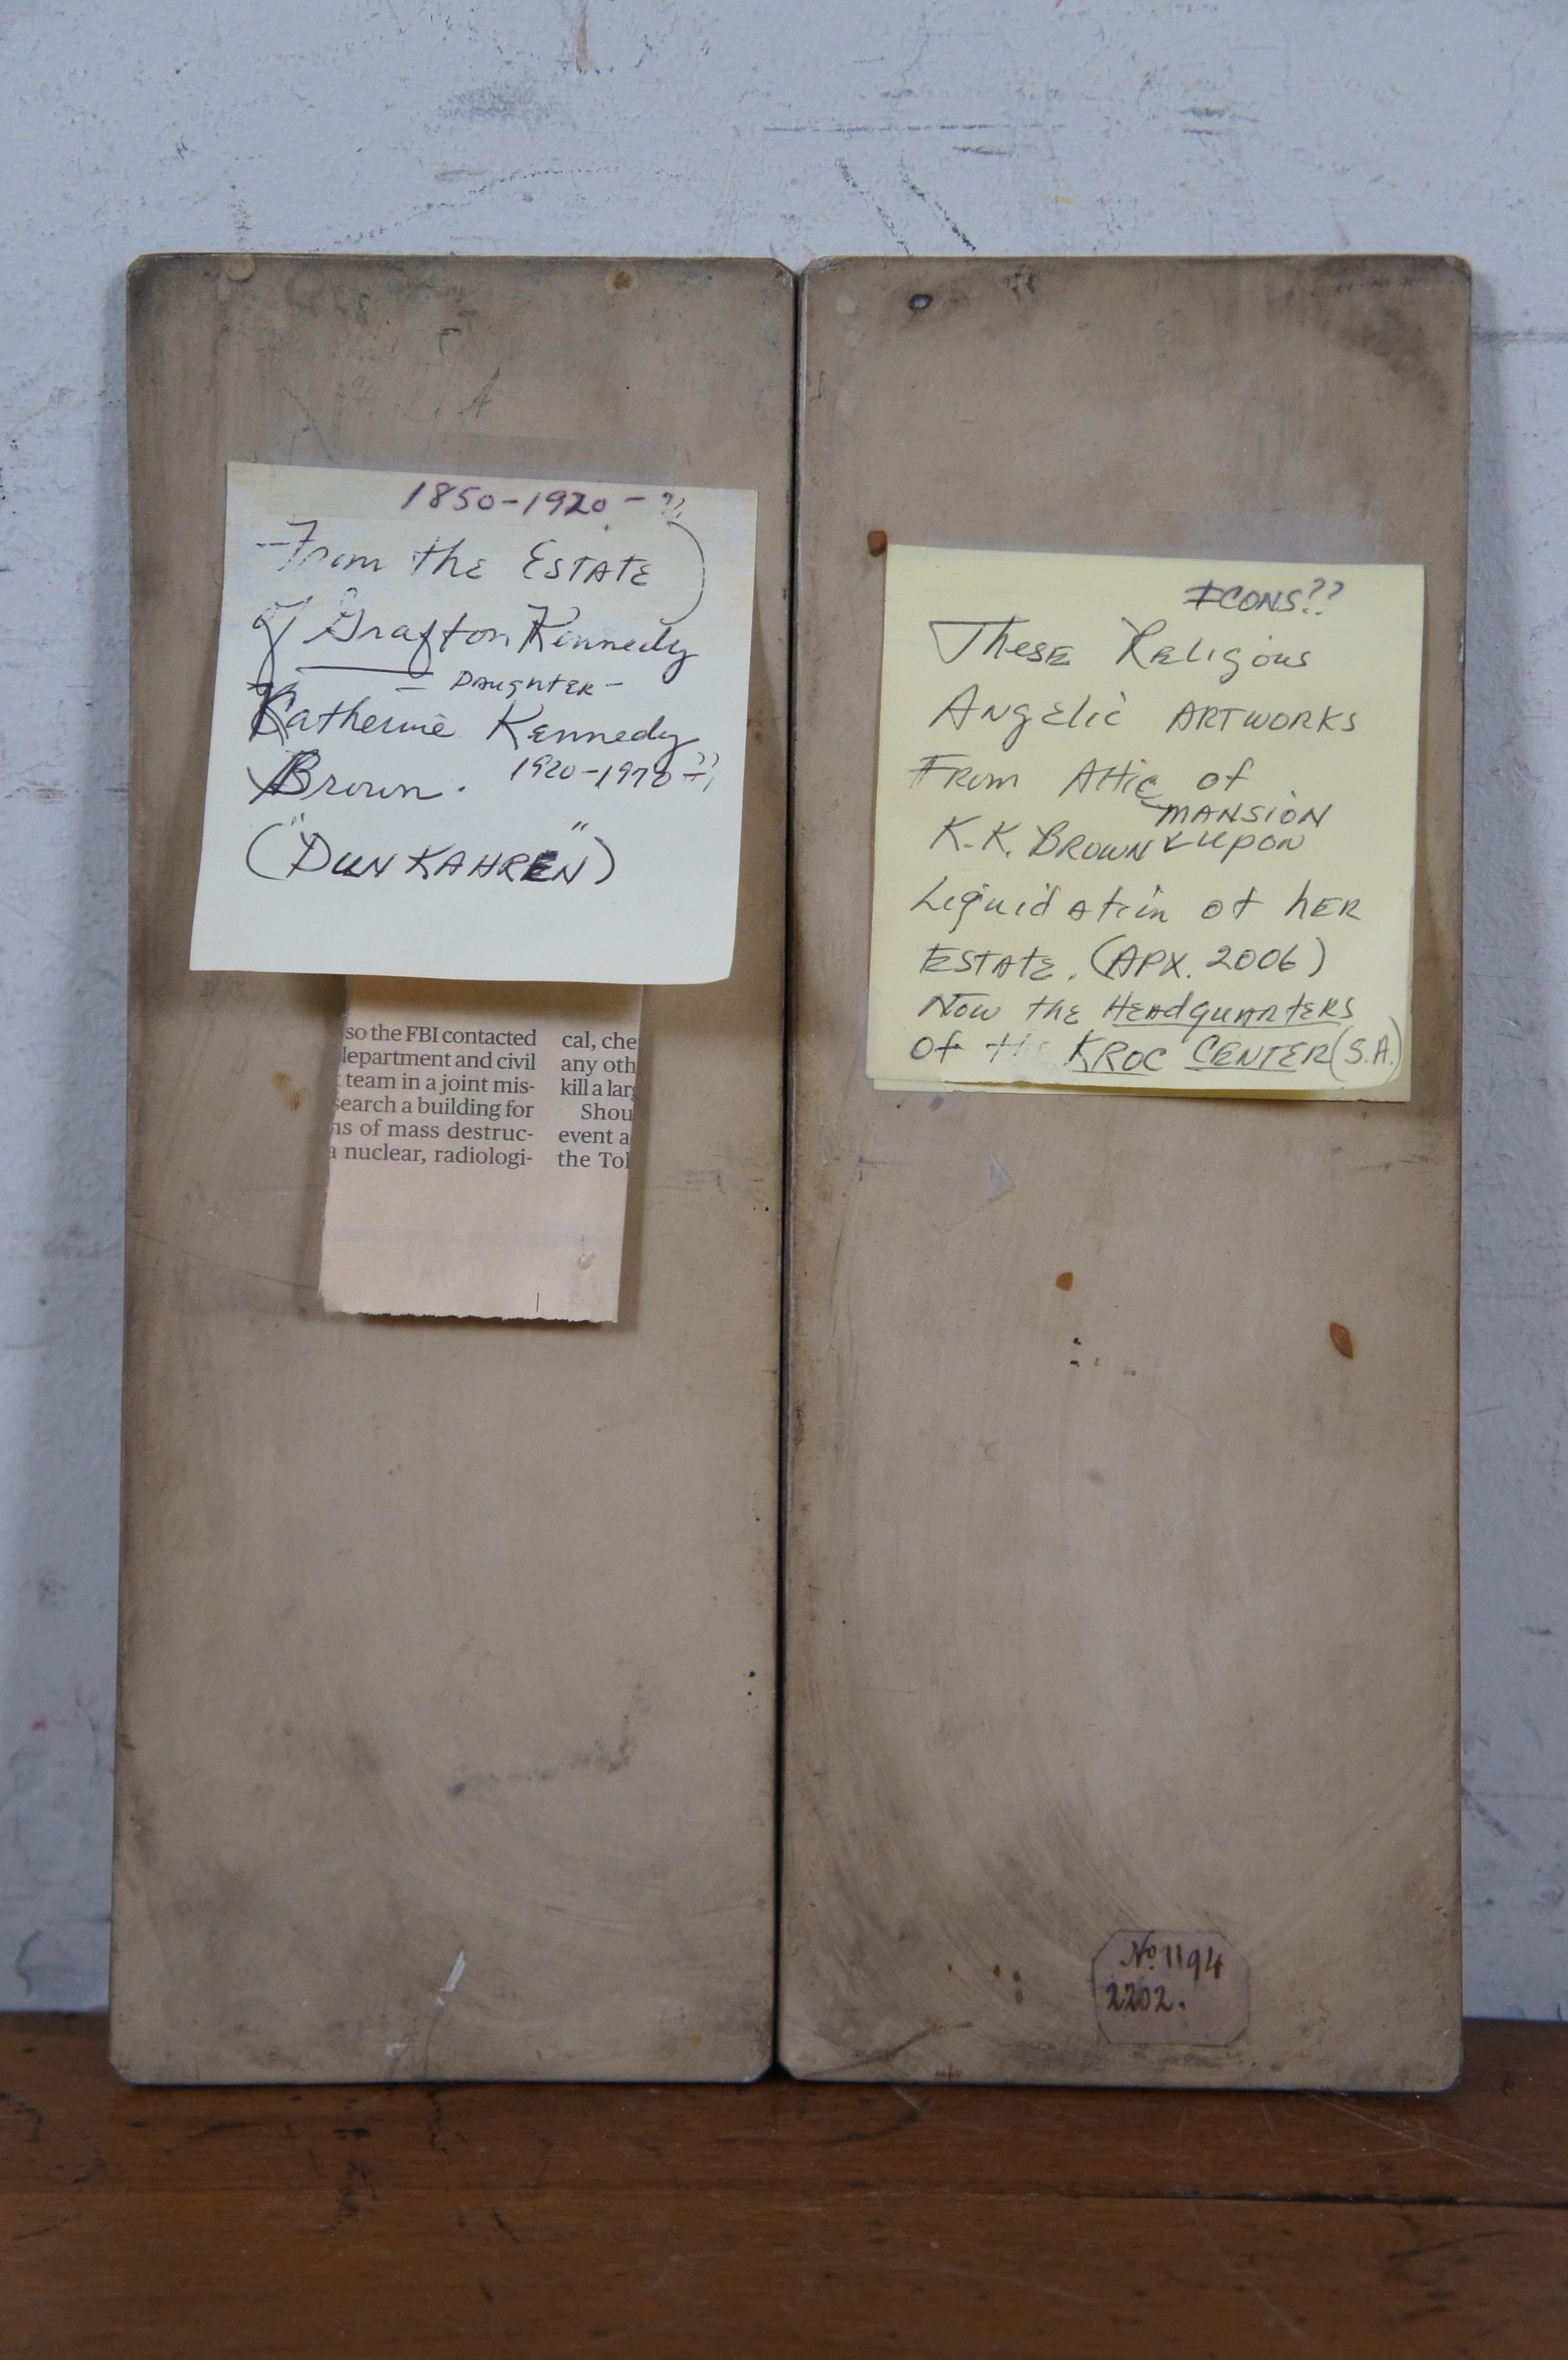 1850-1920-??
From the ESTATE
of Grafton Kennedy
- DAUGHTER -
Katherine Kennedy
Brown. 1920-1970-??
("DUNKAHREN")
so the FBI contacted
department and civil
t team in a joint mis-
search a building for
ns of mass destruc-
a nuclear, radiologi-
cal, che
any oth
kill a larg
Shou
event a
the Tol
ICONS??
These Religous
Angelic ARTWORKS
From Attic of
MANSION
K.K. BROWN upon
Liquidation of hER
ESTATE. (APX. 2006)
Now the HEADquARtERS
Of the KROC CENTER (S.A.)
No. 1194
2202.